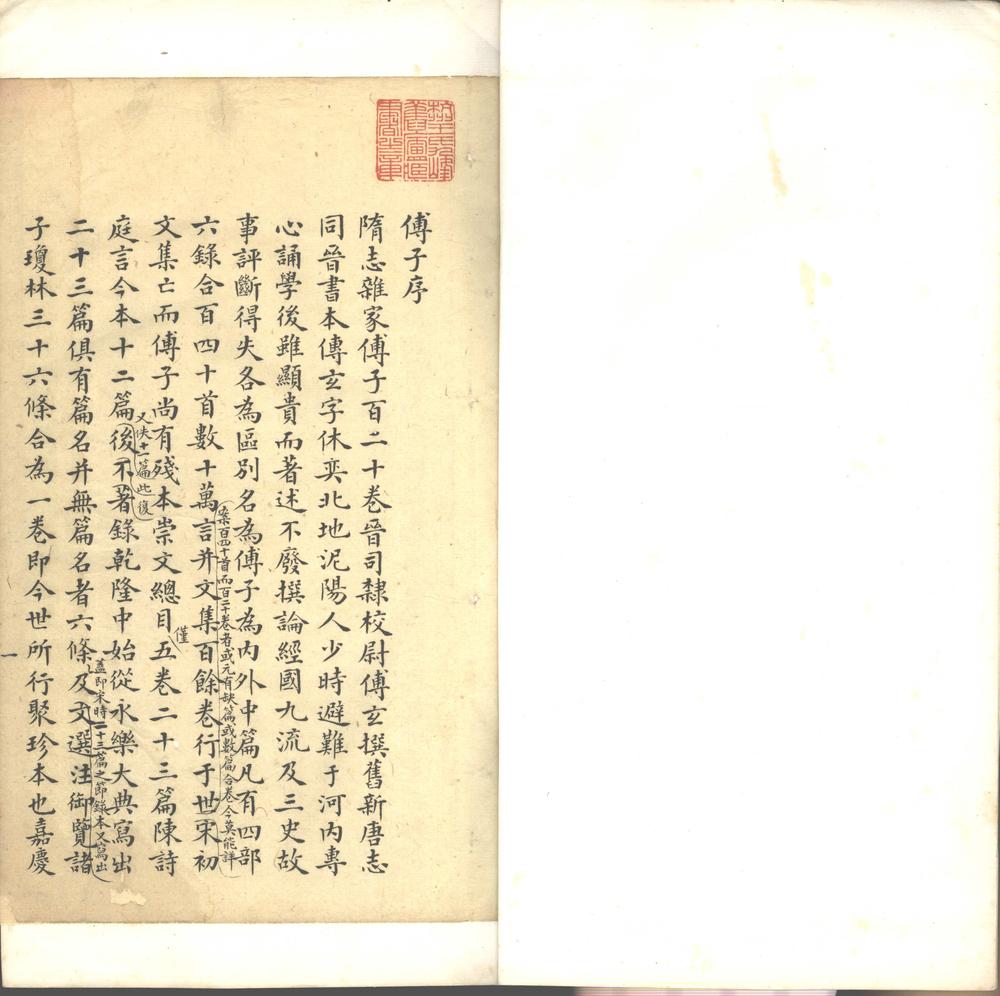 傅子序
隋志雜家傅子百二十卷晉司隸校尉傅玄撰舊新唐志
同晉書本傳玄字休奕北地泥陽人少時避難于河内專
心誦學後雖顯貴而著述不廢撰論經國九流及三史故
事評斷得失各為區別名為傅子為内外中篇凡有四部
六錄合百四十首數十萬言并文集百餘卷行于世宋初
案百四十首而百二十卷者或元有缺篇或數篇合卷今莫能詳
文集亡而傅子尚有殘本崇文總目五卷二十三篇陳詩
僅
庭言今本十二篇後不著錄乾隆中始從永樂大典寫出
又佚十一篇此復
二十三篇俱有篇名并無篇名者六條及文選注御覽諸
蓋即宋時二十三篇之節錄本又寫出
子瓊林三十六條合為一卷即今世所行聚珍本也嘉慶
一